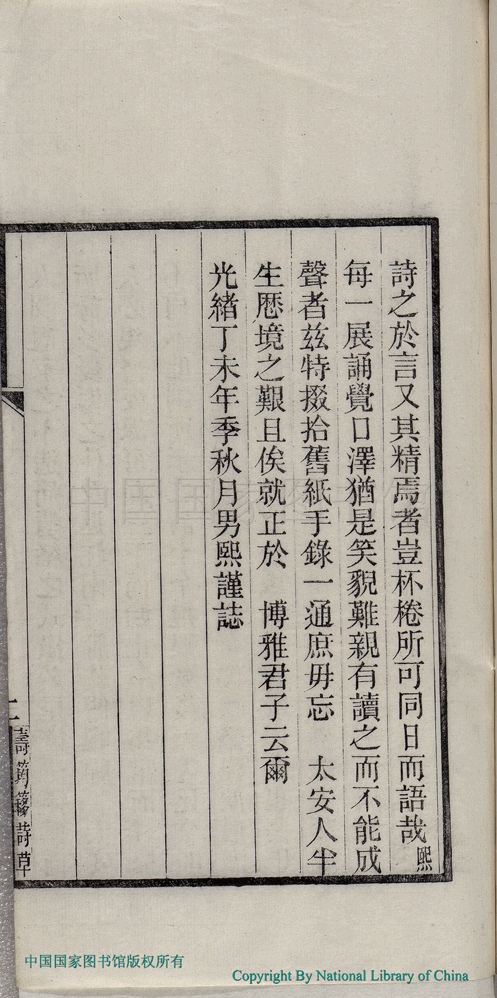 詩之於言又其精焉者豈杯棬所可同日而語哉熙
每一展誦覺口澤猶是笑貌難親有讀之而不能成
聲者茲特掇拾舊紙手錄一通庶毋忘　太安人半
生歷境之艱且俟就正於　博雅君子云爾
光緒丁未年季秋月男熙謹誌
二
詩草
中国国家图书馆版权所有
Copyright By National Library of China